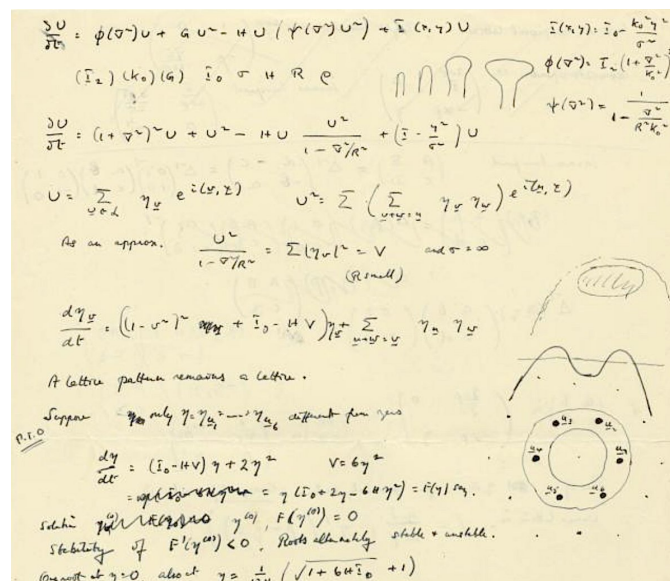 ∂U/∂t = φ(∇²)U + G U² - H U (ψ(∇²) U²) + I(x,y) U
I(x,y) = I₀ - k₀²y²/σ²
(I₂) (k₀) (G) I₀ σ H R ρ
φ(∇²) = I₂ (1 + ∇²/k₀²)²
ψ(∇²) = 1/(1 - ∇²/R²k₀²)
∂U/∂t = (1+∇²)² U + U² - H U U²/(1-∇²/R²) + (I - y²/σ²) U
U = Σ η e^{i( , )} U² = Σ (Σ η η) e^{i( , )}
As an approx. U²/(1-∇²/R²) = Σ(η)² = V and σ = ∞
(R small)
dη/dt = ((1-v²)² + I₀ - HV) η + Σ η η
A lattice pattern remains a lattice.
Suppose only η = η ---- η different from zero
P.T.O
u₃ u₂
u₄ u₁
u₅ u₆
dη/dt = (I₀-HV) η + 2η² V = 6η²
= η (I₀ + 2η - 6Hη²) = F(η) say.
Solution η⁽⁰⁾, F(η⁽⁰⁾) = 0
Stability if F'(η⁽⁰⁾) < 0. Roots alternately stable + unstable.
One root at η=0, also at η = (√(1+6HI₀) + 1)